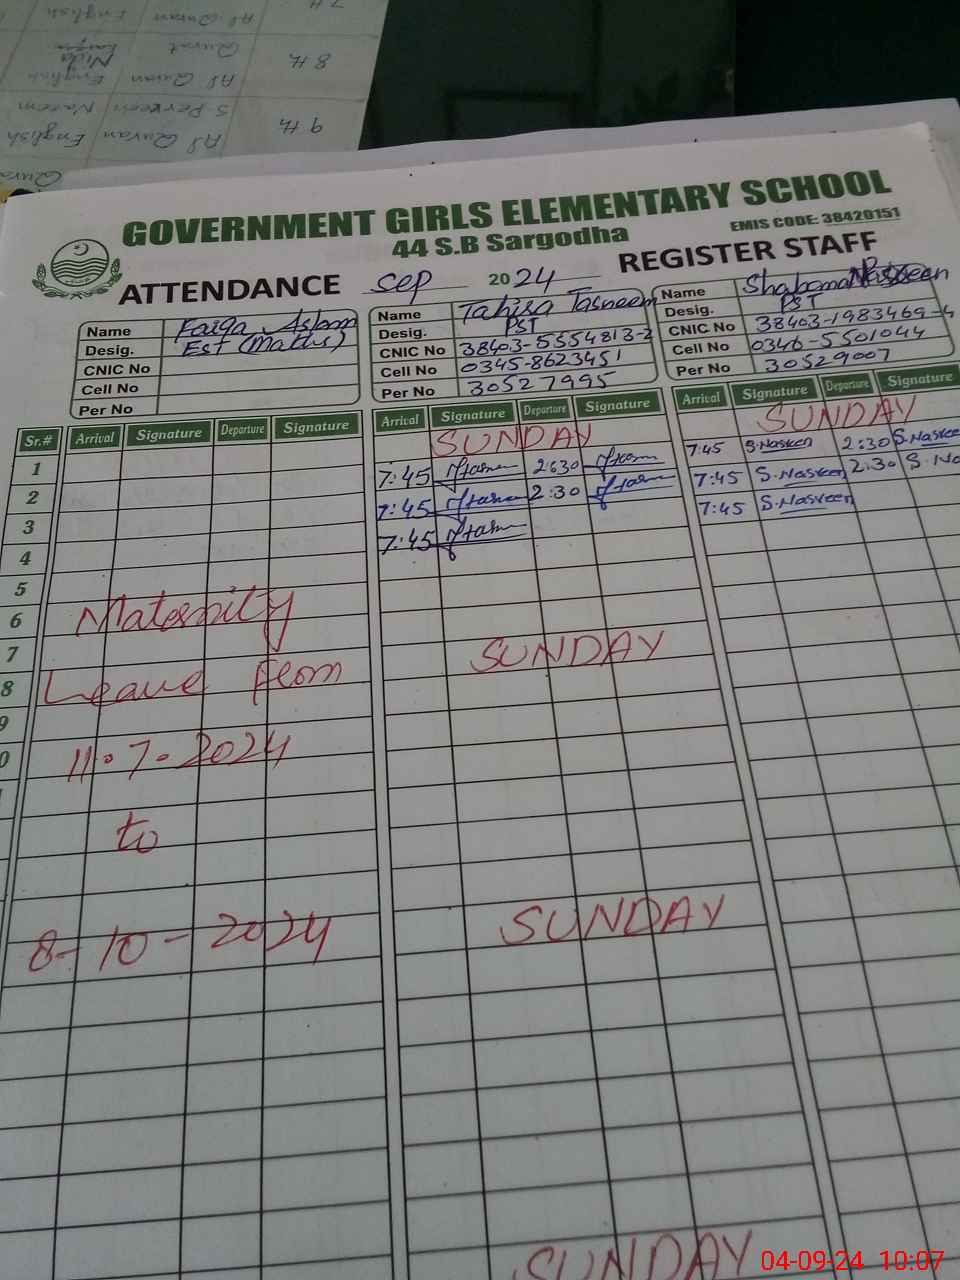 7 H
Al Quran English
8 H.
Qurat Nida
Al Quran English
S. Perveen Naeem
9 H.
Al Quran English
GOVERNMENT GIRLS ELEMENTARY SCHOOL
44 S.B Sargodha
EMIS CODE: 38420151
ATTENDANCE Sep 2024 REGISTER STAFF
Name Faiqa Aslam
Desig. Est (Maths)
CNIC No
Cell No
Per No
Name Tahira Tasneem
Desig. PST
CNIC No 38403-5554813-2
Cell No 0345-8623451
Per No 30527995
Name Shabana Nasreen
Desig. PST
CNIC No 38403-1983469-4
Cell No 0346-5501044
Per No 30529007
Sr.# Arrival Signature Departure Signature Arrival Signature Departure Signature Arrival Signature Departure Signature
1 SUNDAY SUNDAY
2 7:45 2:30 7:45 S.Nasreen 2:30 S.Nasreen
3 7:45 2:30 7:45 S.Nasreen 2:30 S.Na
4 7:45 7:45 S.Nasreen
5
6 Maternity
7 SUNDAY
8 Leave From
9
0 11.7.2024
to
8-10-2024 SUNDAY
SUNDAY
04-09-24 10:07